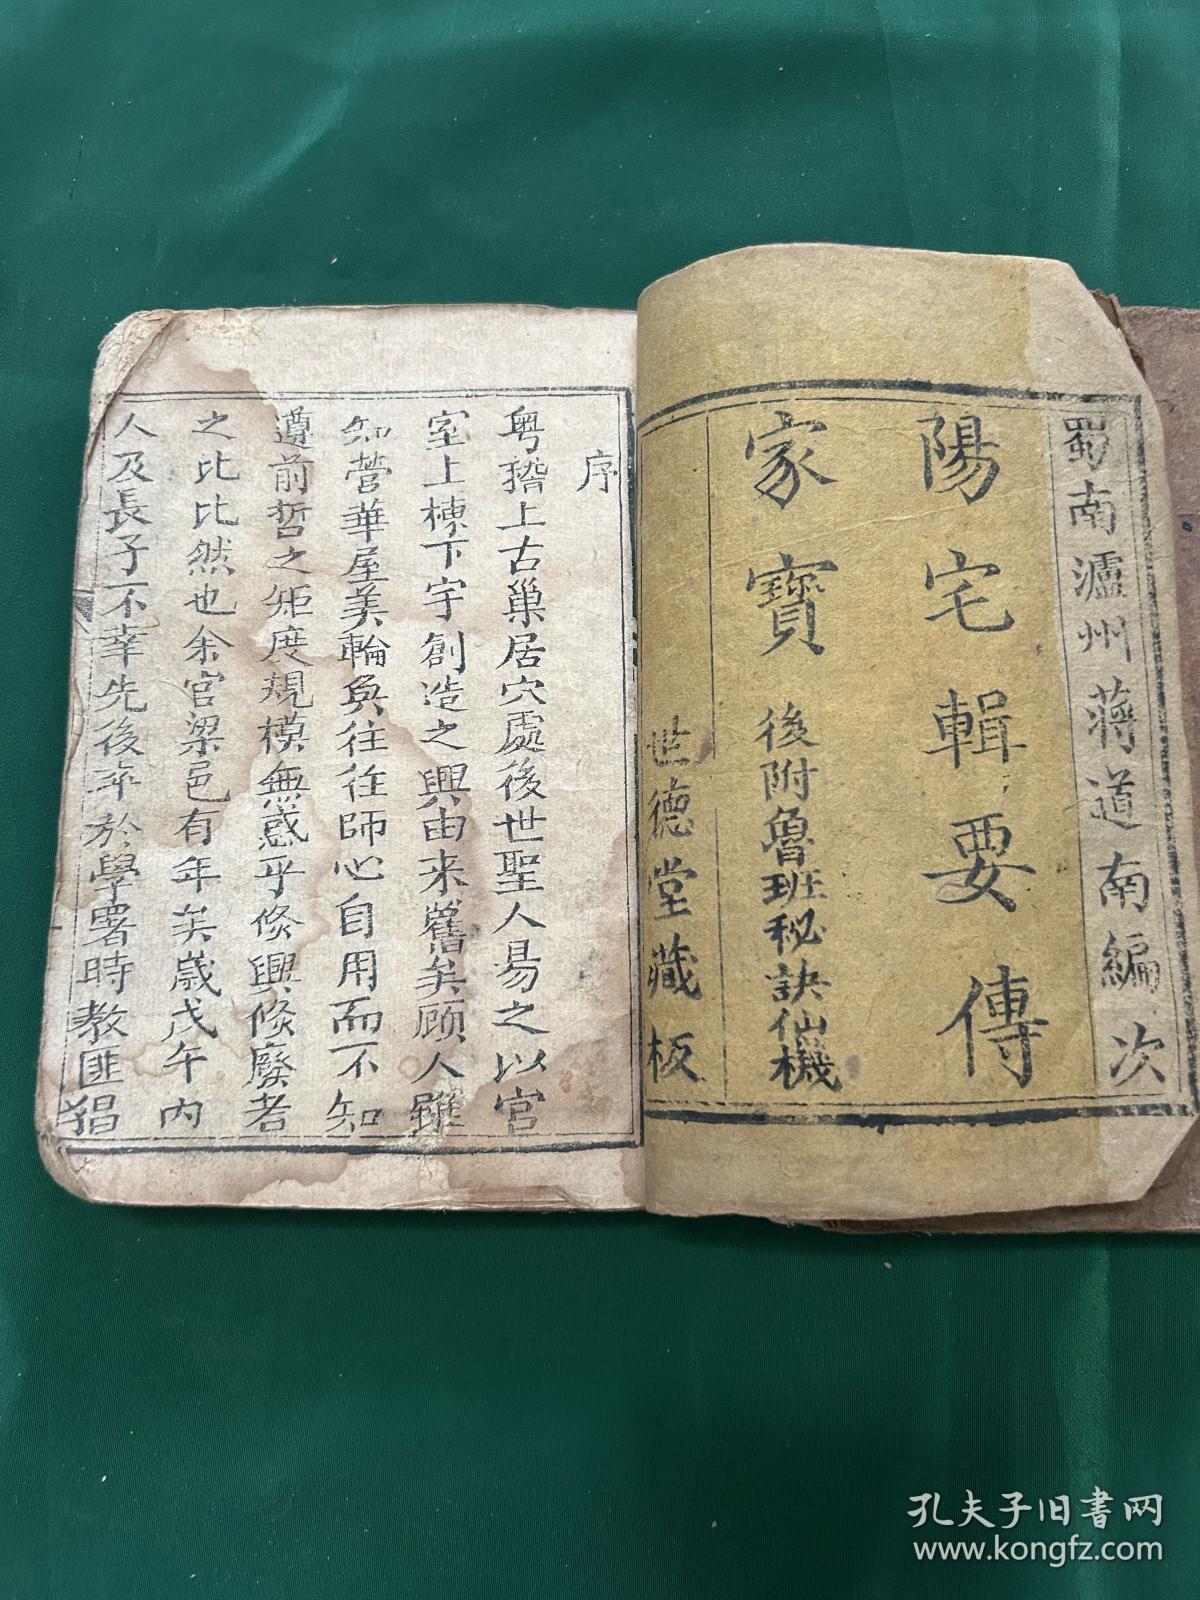 蜀南瀘州蔣道南編次
陽宅輯要傳
家寶 後附魯班秘訣仙機
世德堂藏板
序
粤稽上古巢居穴處後世聖人易之以宮
室上棟下宇創造之興由來舊矣顧人雖
知營華屋美輪奐往往師心自用而不知
遵前哲之矩度規模無惑乎倐興倐廢者
之比比然也余官梁邑有年矣歲戊午內
人及長子不幸先後卒於學署時教匪猖
孔夫子旧书网
www.kongfz.com